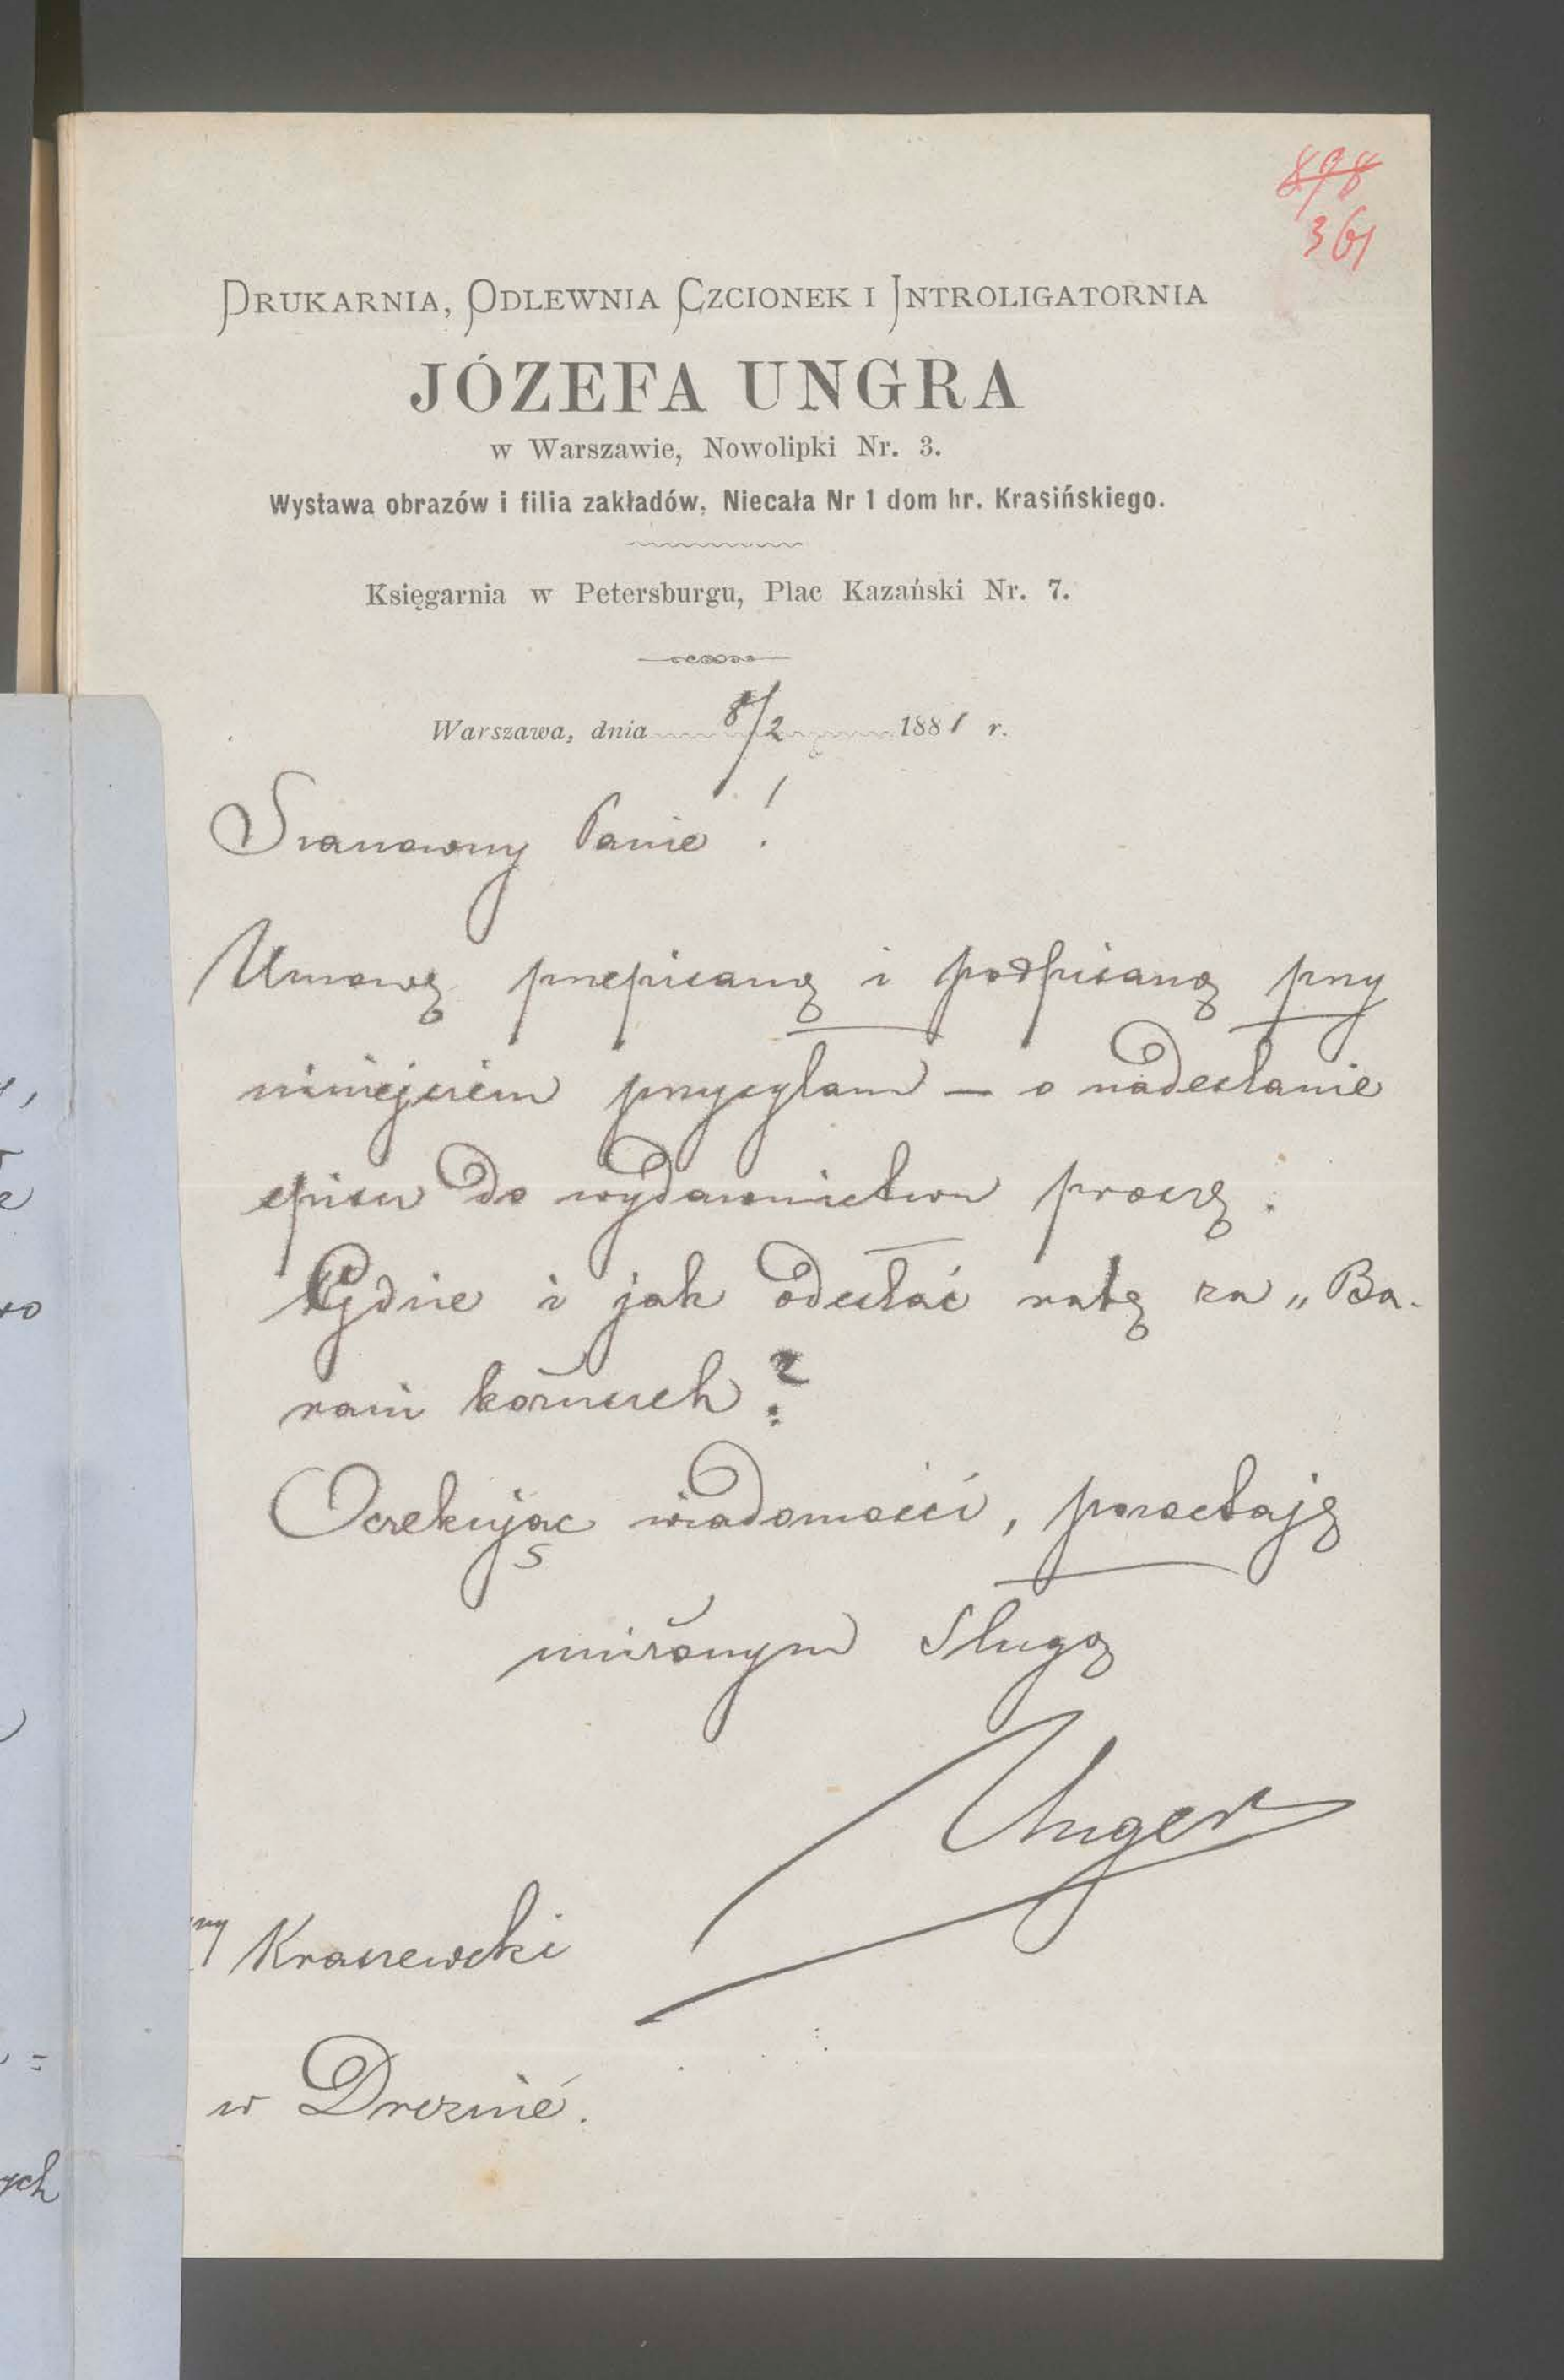 898
361
DRUKARNIA, ODLEWNIA CZCIONEK I INTROLIGATORNIA
JÓZEFA UNGRA
w Warszawie, Nowolipki Nr. 3.
Wystawa obrazów i filia zakładów, Niecała Nr 1 dom hr. Krasińskiego.
Księgarnia w Petersburgu, Plac Kazański Nr. 7.
Warszawa, dnia 8/2 1881 r.
Szanowny Panie!
Umowę przepisaną i podpisaną przy
niniejszem przysyłam — o nadesłanie
spisu do wydawnictwa proszę.
Gdzie i jak odesłać ratę za „Ba-
rani kożuszek?
Oczekując wiadomości, pozostaję
uniżonym sługą
Unger
Kraszewski
w Dreznie.
ych